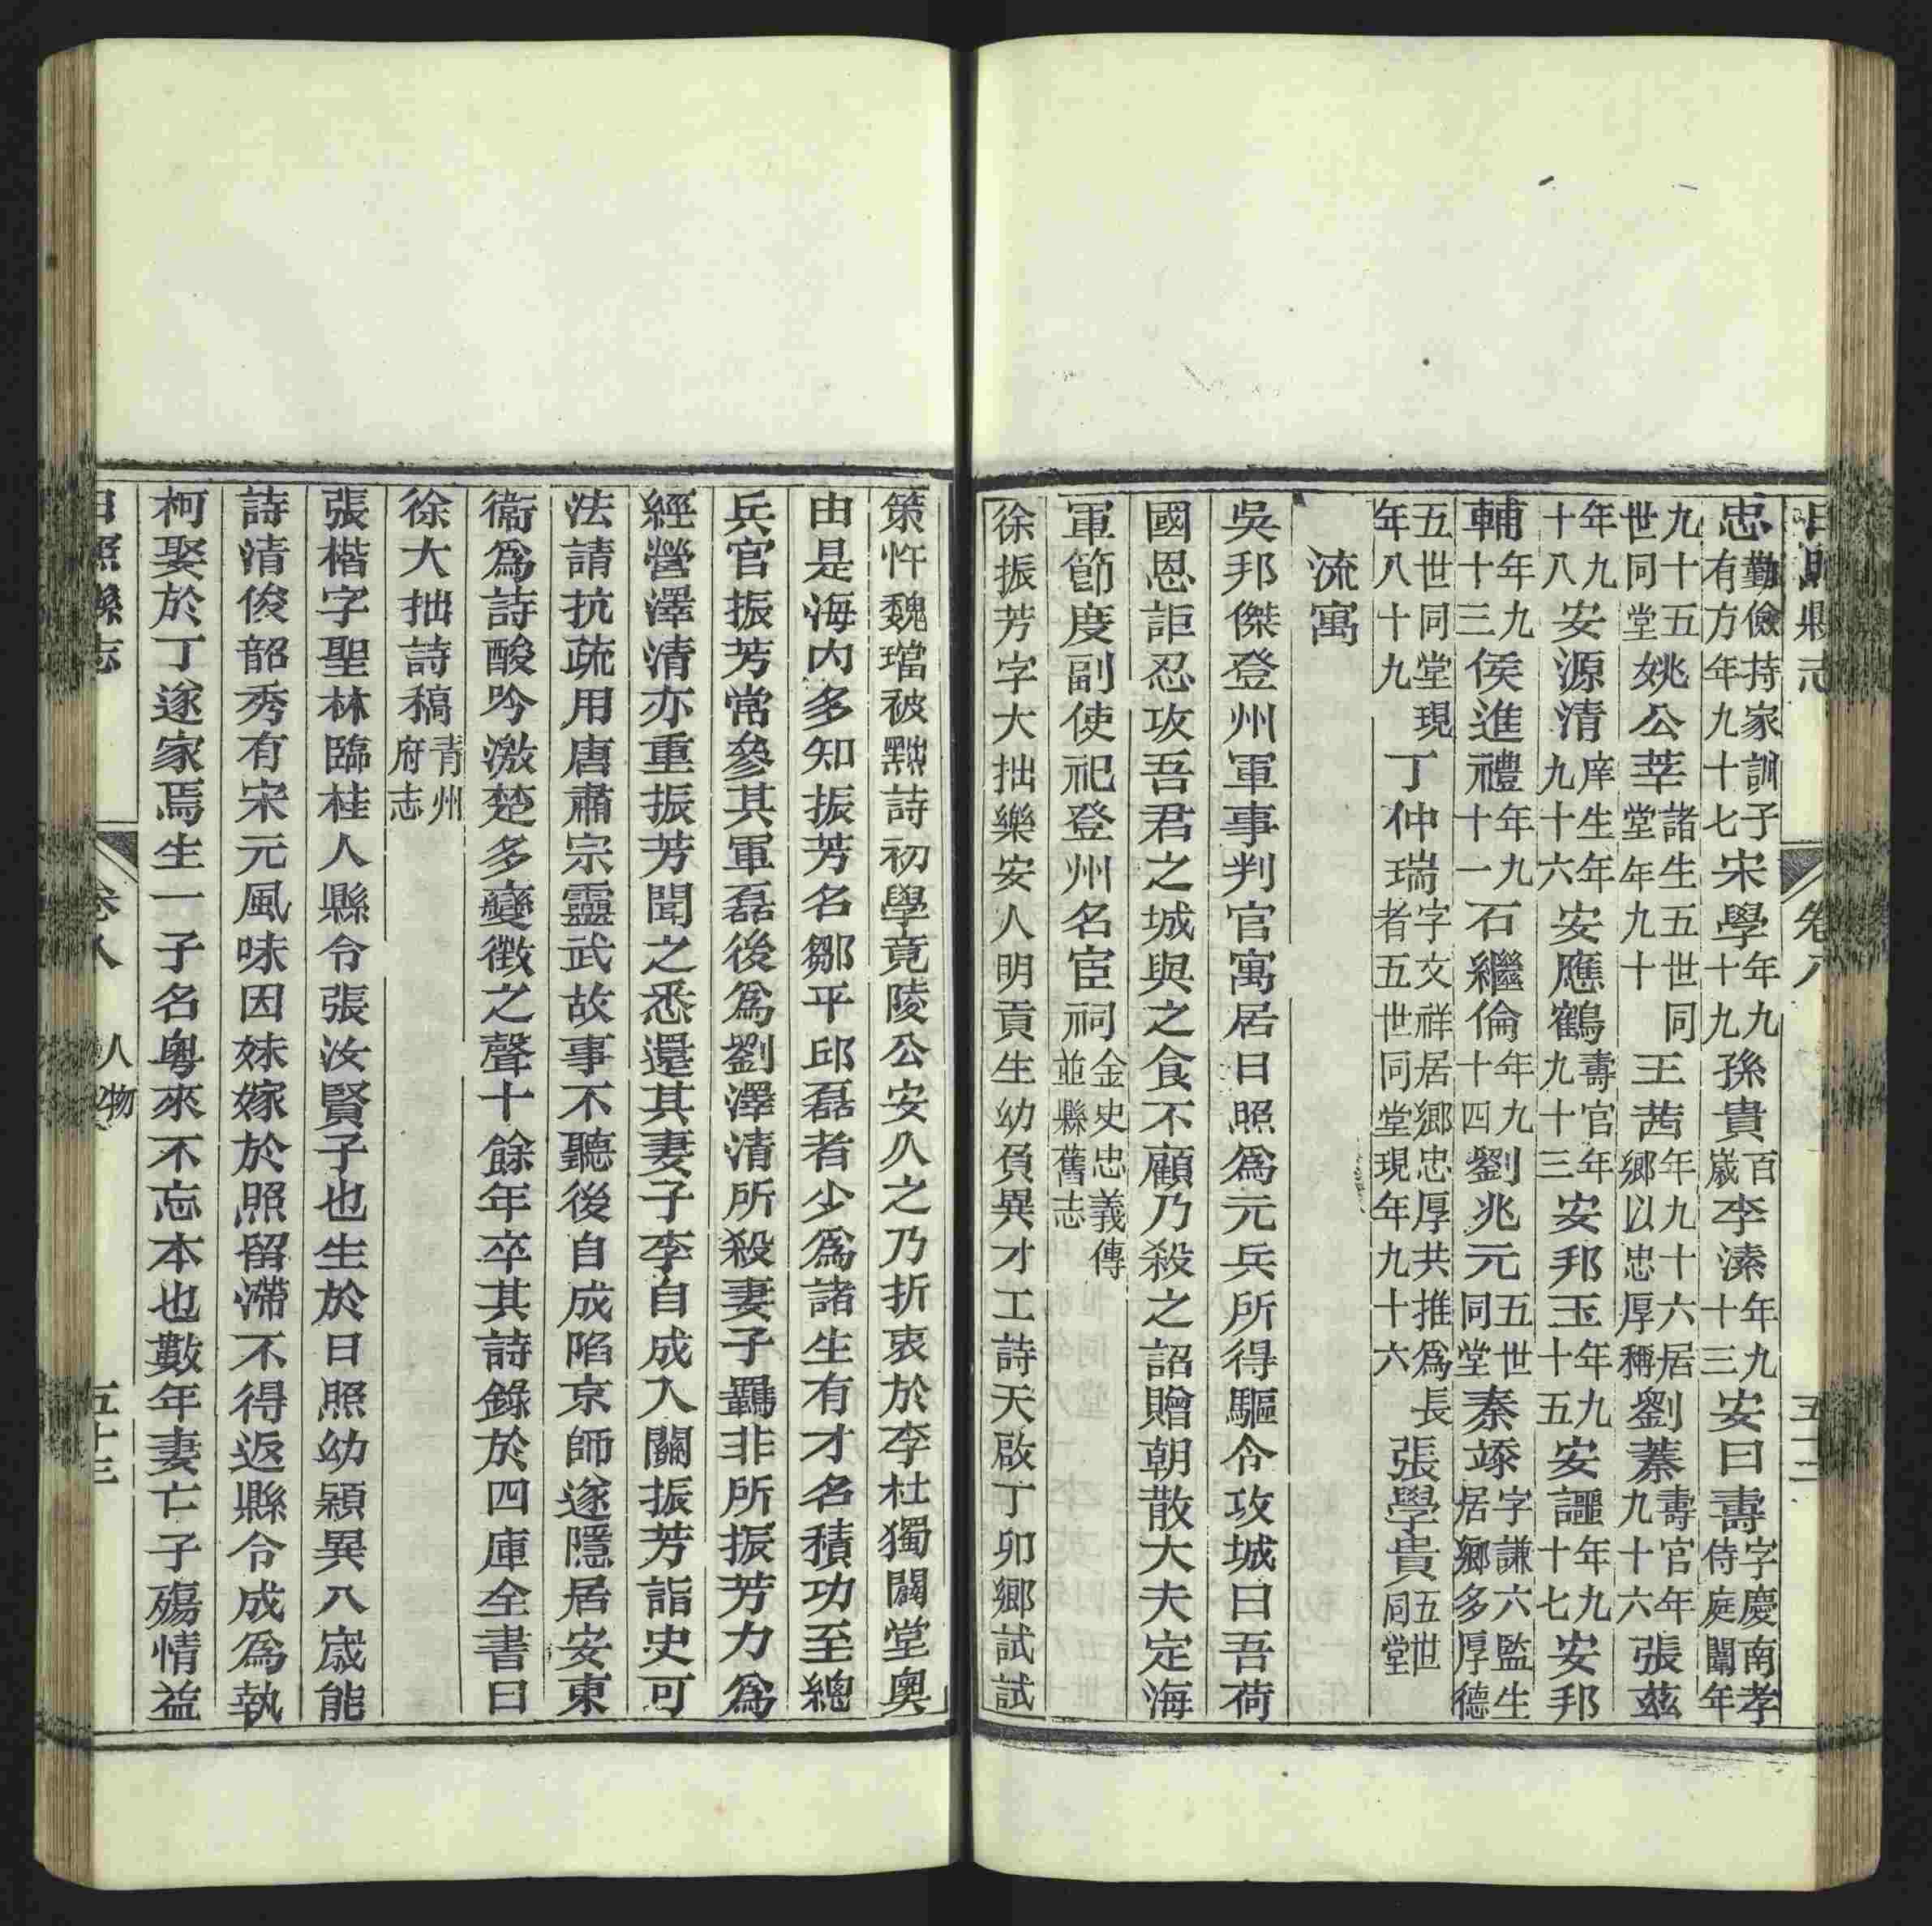 日照縣志 卷八
忠勤儉持家訓子有方年九十七宋學年九十九孫貴百歲李溱年九十三安曰壽字慶南孝侍庭闈年
九十五世同堂姚公莘諸生五世同堂年九十王茜年九十六居鄉以忠厚稱劉蓁壽官年九十六張茲
年九十八安源清庠生年九十六安應鶴壽官年九十三安邦玉年九十五安謳年九十七安邦
輔年九十三侯進禮年九十一石繼倫年九十四劉兆元五世同堂秦字謙六監生居鄉多厚德
五世同堂現年八十九丁仲瑞字文祥居鄉忠厚共推爲長者五世同堂現年九十六張學貴五世同堂
流寓
吳邦傑登州軍事判官寓居日照爲元兵所得驅令攻城曰吾荷
國恩詎忍攻吾君之城與之食不顧乃殺之詔贈朝散大夫定海
軍節度副使祀登州名宦祠金史忠義傳並縣舊志
徐振芳字大拙樂安人明貢生幼負異才工詩天啟丁卯鄉試試
策忤魏璫被黜詩初學竟陵公安久之乃折衷於李杜獨闢堂奧
由是海內多知振芳名鄒平邱磊者少爲諸生有才名積功至總
兵官振芳常參其軍磊後爲劉澤清所殺妻子羈非所振芳力爲
經營澤清亦重振芳聞之悉還其妻子李自成入關振芳詣史可
法請抗疏用唐肅宗靈武故事不聽後自成陷京師遂隱居安東
衞爲詩酸吟激楚多變徵之聲十餘年卒其詩錄於四庫全書曰
徐大拙詩稿青州府志
張楷字聖林臨桂人縣令張汝賢子也生於日照幼穎異八歲能
詩清俊韶秀有宋元風味因妹嫁於照留滯不得返縣令成爲執
柯娶於丁遂家焉生一子名粵來不忘本也數年妻亡子殤情益
日照縣志 卷八 人物 五十三